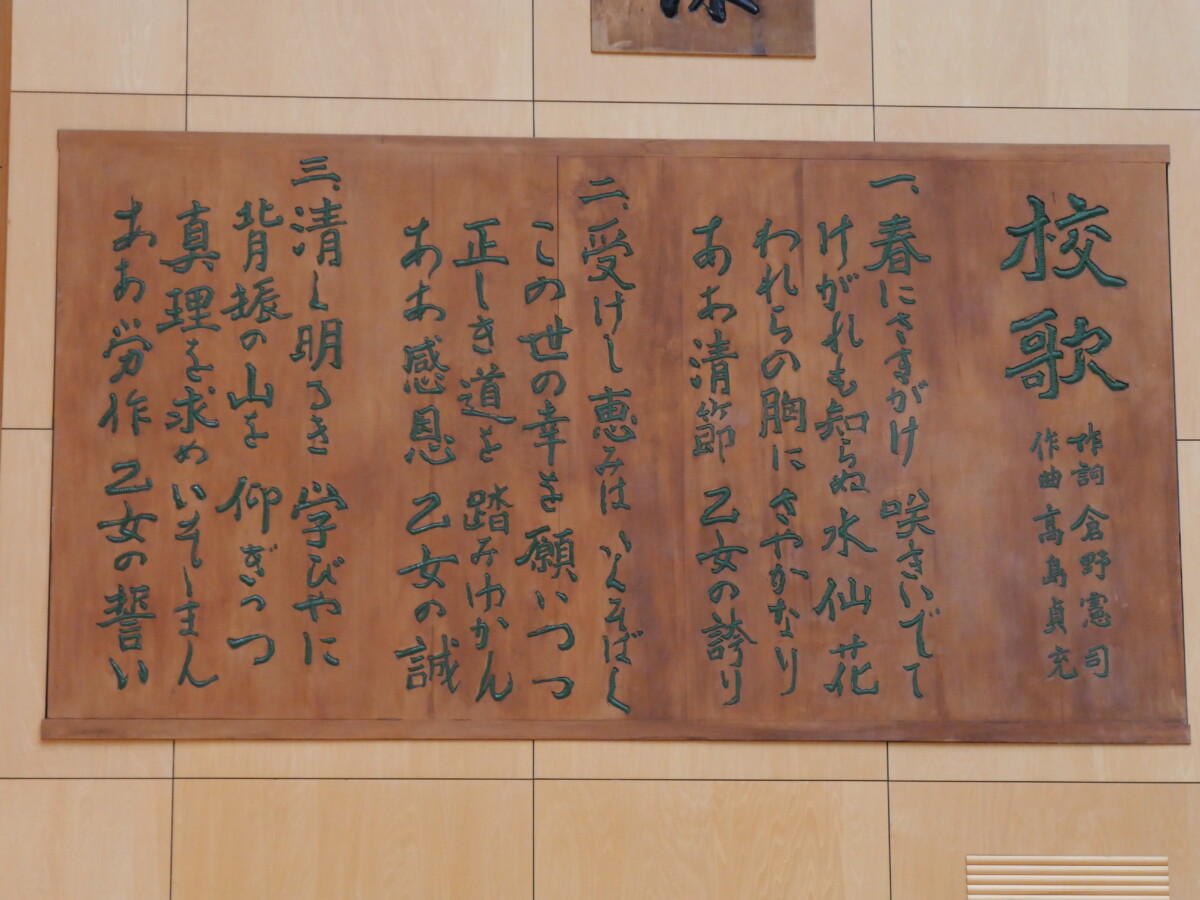 校歌
作詞 倉野憲司
作曲 高島貞充
一、春にさきがけ 咲きいでて
けがれも知らぬ 水仙花
われらの胸に さやかなり
あゝ清節 乙女の誇り
二、受けし恵みは いくそばく
この世の幸を 願いつつ
正しき道を 踏みゆかん
あゝ感恩 乙女の誠
三、清く明るき 学びやに
背振の山を 仰ぎつつ
真理を求め いそしまん
あゝ労作 乙女の誓い